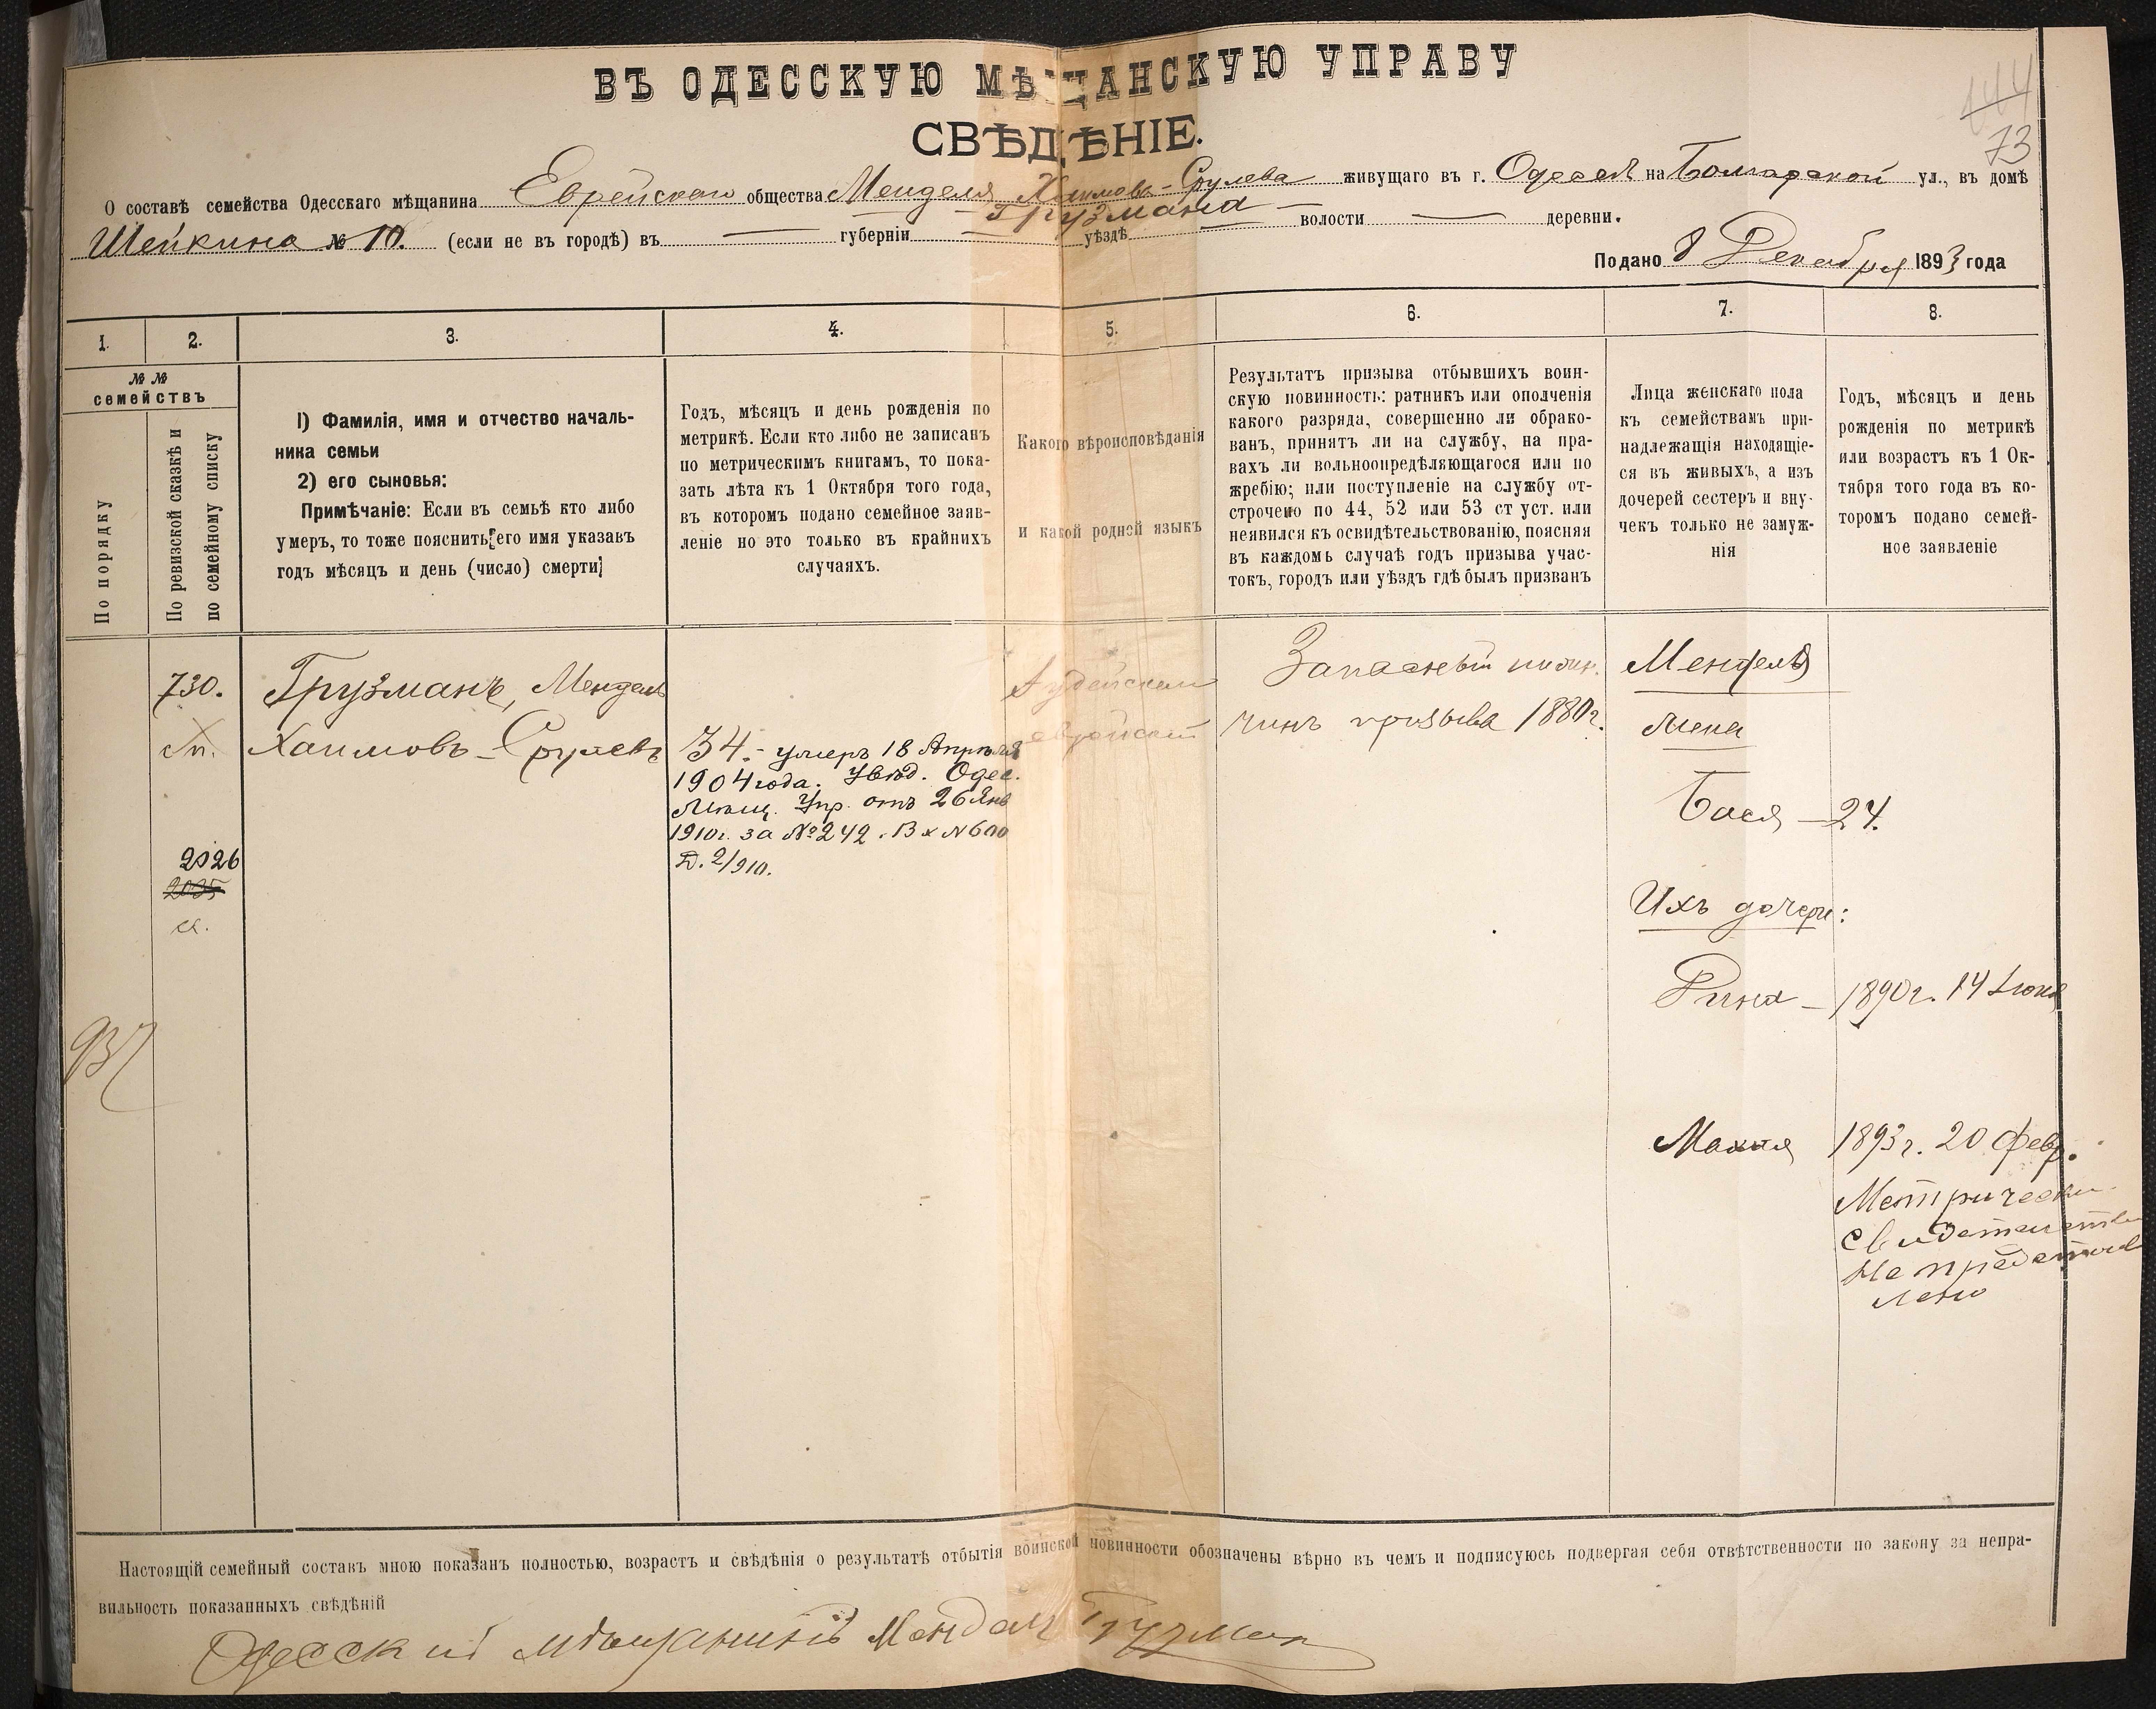 ВЪ ОДЕССКУЮ МѢЩАНСКУЮ УПРАВУ
СВѢДѢНІЕ.
73
О составѣ семейства Одесскаго мѣщанина Еврейскаго общества Менделя Хаимовъ-Срулева живущаго въ г. Одессѣ на Болгарской ул., въ домѣ
Грузмана
Шейкина № 10. (если не въ городѣ) въ — губерніи — уѣздѣ — волости — деревни.
Подано 8 Декабря 1893 года
1. 2. 3. 4. 5. 6. 7. 8.
№№
семействъ
По порядку
По ревизской сказкѣ и
по семейному списку
1) Фамилія, имя и отчество началь-
ника семьи
2) его сыновья:
Примѣчаніе: Если въ семьѣ кто либо
умеръ, то тоже пояснить его имя указавъ
годъ мѣсяцъ и день (число) смерти;
Годъ, мѣсяцъ и день рожденія по
метрикѣ. Если кто либо не записанъ
по метрическимъ книгамъ, то пока-
зать лѣта къ 1 Октября того года,
въ которомъ подано семейное заяв-
леніе но это только въ крайнихъ
случаяхъ.
Какого вѣроисповѣданія
и какой родной языкъ
Результатъ призыва отбывшихъ воин-
скую повинность: ратникъ или ополченія
какого разряда, совершенно ли обрако-
ванъ, принятъ ли на службу, на пра-
вахъ ли вольноопредѣляющагося или по
жребію; или поступленіе на службу от-
строчено по 44, 52 или 53 ст уст. или
неявился къ освидѣтельствованію, поясняя
въ каждомъ случаѣ годъ призыва учас-
токъ, городъ или уѣздъ гдѣ былъ призванъ
Лица женскаго пола
къ семействамъ при-
надлежащія находящіе-
ся въ живыхъ, а изъ
дочерей сестеръ и вну-
чекъ только не замуж-
нія
Годъ, мѣсяцъ и день
рожденія по метрикѣ
или возрастъ къ 1 Ок-
тября того года въ ко-
торомъ подано семей-
ное заявленіе
730.
2026
2035
Грузманъ, Мендель
Хаимовъ-Срулевъ
34. - умеръ 18 Апрѣля
1904 года. Увѣд. Одес.
Мѣщ. Упр. отъ 26 Янв
1910 г. за № 242. Вх N 600
Д. 2/910.
Іудейскаго
еврейскій
Запасный нижн.
чинъ призыва 1880 г.
Менделя
жена
Бася — 24.
Ихъ дочери:
Рина — 1890 г. 14 Іюня
Махля 1893 г. 20 Февр.
Метрически
свидетельства
не представ
лено
Настоящій семейный составъ мною показанъ полностью, возрастъ и свѣдѣнія о результатѣ отбытія воинской повинности обозначены вѣрно въ чемъ и подписуюсь подвергая себя отвѣтственности по закону за непра-
вильность показанныхъ свѣдѣній
Одесский мѣщанинъ Мендель Грузман